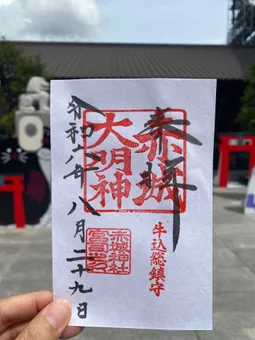 奉拝
赤城
大明神
牛込総鎮守
令和六年八月二十九日
赤城神社